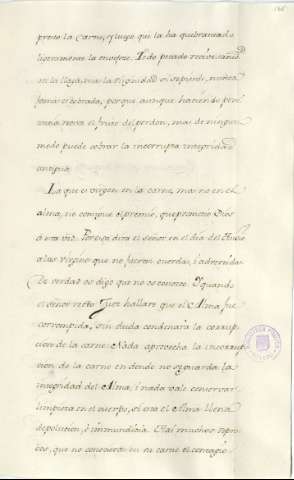 presto la carne, y luego que la ha quebrantado
ligeramente la
Todo pecado recibe sanid.
en la llaga, mas la Virginidad si se pierde, nunca
sera cobrada, porque aunque haciendo peni
tencia lleva el fruto del perdon, mas de ningun
modo puede cobrar la incorrupta integridad
antigua.
La que es virgen en la carne, mas no en el
alma, no consigue el premio, que prometio Dios
a esta vir. Por eso dira el señor en el dia del Juicio
a las virgenes que no fueron cuerdas, i advertidas
De verdad os digo que no os conozco. Y quando
el señor recto Juez hallare que el Alma fue
corrompida, sin duda condenara la corrup
cion de la carne. Nada aprovecha la incorrup
cion de la carne en donde no se guarda la
integridad del Alma, i nada vale conservar
limpieza en el cuerpo, si esta el Alma llena
de polucion, è inmundicia. Hai muchos repro
bos, que no conocieron en su carne el contagio